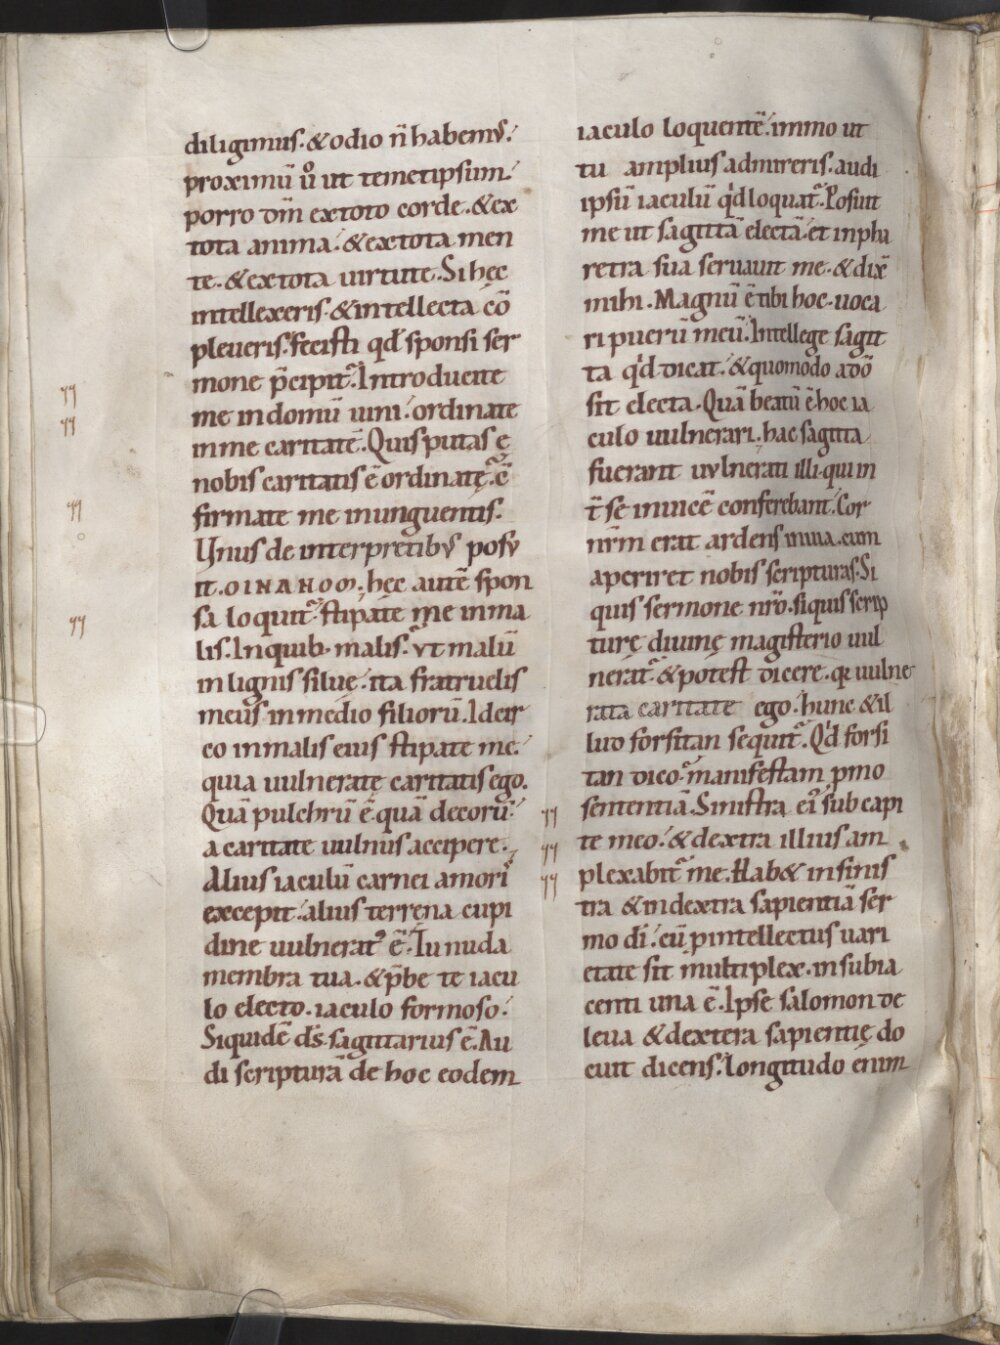 diligimus·&odio n̄ habemꝰ·
proximū ů ut temetipsum·
porro dm̄ extoto corde·&ex
tota anima·&extota men
te·&extota uirtute·Si hęc
intellexeris·&intellecta cō
pleueris·fecisti qđ sponsi ser
mone p̄cipit̃·Introducite
me indomū uini·ordinate
inme caritatē·Quis putas ę
nobis caritatis ē ordinatę·c̄
firmate me inunguentis·
Unus de interpretibꝰ posu
it·OINANON·hęc autē spon
sa loquit̃·stipate me inma
lis·Inquib·malis·ut malū
inlignis siluę·ita fratruelis
meus inmedio filiorū·Idcir
co inmalis eius stipate me·
quia uulneratę caritatis ego·
Quā pulchrū ē·quā decorū·
a caritate uulnus accipere·
Alius iaculū carnei amoris
excepit·alius terrena cupi
dine uulneratꝰ ē·Tu nuda
membra tua·&p̄be te iacu
lo electo·iaculo formoso·
Siquidē ds̄ sagittarius ē·Au
di scripturā de hoc eodem
iaculo loquentē·immo ut
tu amplius admireris·audi
ipsū iaculū qd loquat̃·Posuit
me ut sagittā electā·et inpha
retra sua seruauit me·&dix̄
mihi·Magnū ē tibi hoc·uoca
ri puerū meū·Intellege sagit
ta qd dicat·&quomodo a dō
sit electa·Quā beatū ē hoc ia
culo uulnerari·hac sagitta
fuerant uulnerati illi·qui in
t̄ se inuicē conferebant·Cor
nr̄m erat ardens inuia·cum
aperiret nobis scripturas·Si
quis sermone nr̄o·siquis scrip
turę diuinę magisterio uul
nerat̃·&potest dicere·qꝛ uulne
rata caritate ego·hunc &il
lud forsitan sequit̃·Qd forsi
tan dico·manifestam pmo
sententiā·Sinistra eiꝰ sub capi
te meo·&dextra illius am
plexabit̃ me·Hab& insinis
tra &indextra sapientiā ser
mo dī·cū pintellectus uari
etate sit multiplex·insubia
centi una ē·Ipse salomon de
leua &dextera sapientię do
cuit dicens·Longitudo enim